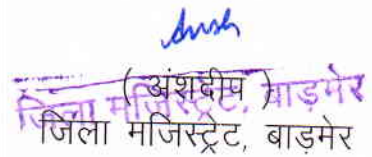 (अंशदीप)
जिला मजिस्ट्रेट, बाड़मेर
जिला मजिस्ट्रेट, बाड़मेर